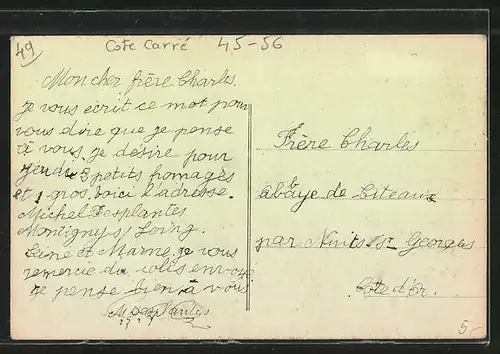 49
Cote Carré 45-56
Mon cher frère Charles.
je vous écrit ce mot pour
vous dire que je pense
à vous. je désire pour
jeudi 3 petits fromages
et 1 gros. voici l'adresse.
Michel Desplantes
Montigny s/ Loing.
Seine et Marne. je vous
remercie du colis envoyé
je pense bien à vous
M Desplantes
Frère Charles
Abbaye de Citeaux
par Nuits St Georges
Côte d'Or.
5-